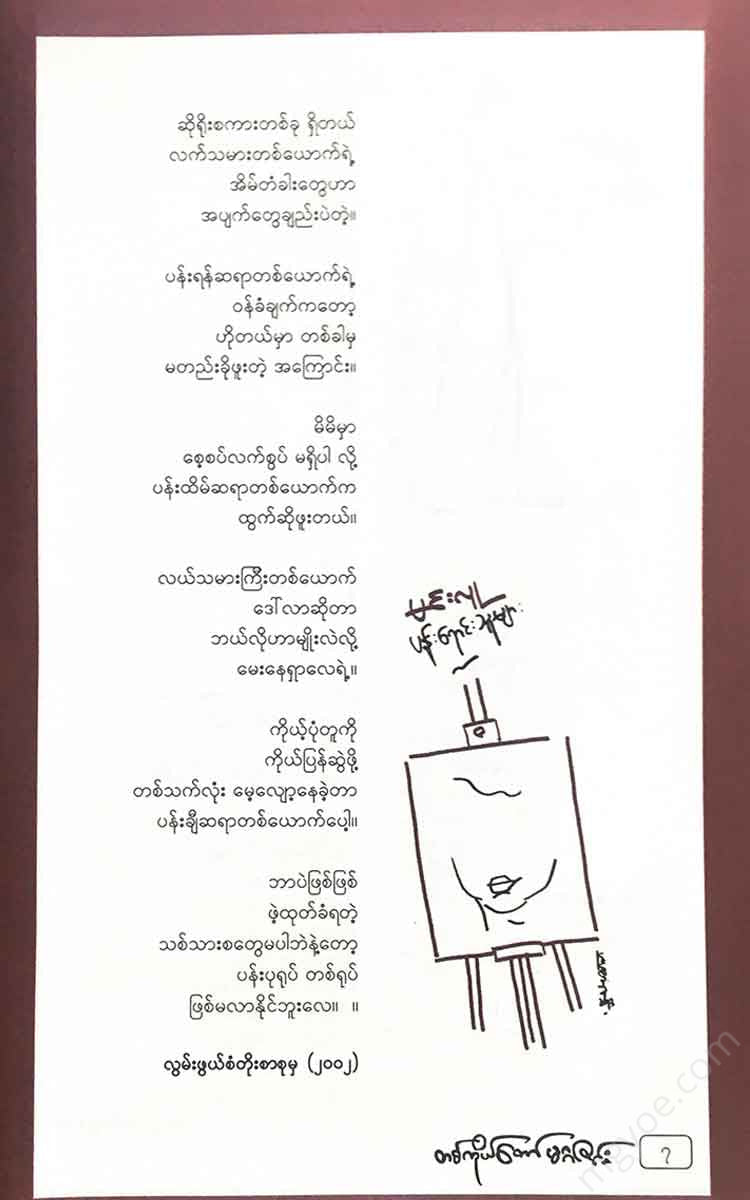 ဆိုရိုးစကားတစ်ခု ရှိတယ်
လက်သမားတစ်ယောက်ရဲ့
အိမ်တံခါးတွေဟာ
အပျက်တွေချည်းပဲတဲ့။
ပန်းရန်ဆရာတစ်ယောက်ရဲ့
ဝန်ခံချက်ကတော့
ဟိုတယ်မှာ တစ်ခါမှ
မတည်းခိုဖူးတဲ့ အကြောင်း။
မိမိမှာ
စေ့စပ်လက်စွပ် မရှိပါ လို့
ပန်းထိမ်ဆရာတစ်ယောက်က
ထွက်ဆိုဖူးတယ်။
လယ်သမားကြီးတစ်ယောက်
ဒေါ်လာဆိုတာ
ဘယ်လိုဟာမျိုးလဲလို့
မေးနေရှာလေရဲ့။
ကိုယ့်ပုံတူကို
ကိုယ်ပြန်ဆွဲဖို့
တစ်သက်လုံး မေ့လျော့နေခဲ့တာ
ပန်းချီဆရာတစ်ယောက်ပေါ့။
ဘာပဲဖြစ်ဖြစ်
ဖဲ့ထုတ်ခံရတဲ့
သစ်သားစတွေမပါဘဲနဲ့တော့
ပန်းပုရုပ် တစ်ရုပ်
ဖြစ်မလာနိုင်ဘူးလေ။ ။
လွမ်းဖွယ်စံတိုးစာစုမှ (၂၀၀၂)
ပန်းရောင်းသူများ
၇
mgyoe.com